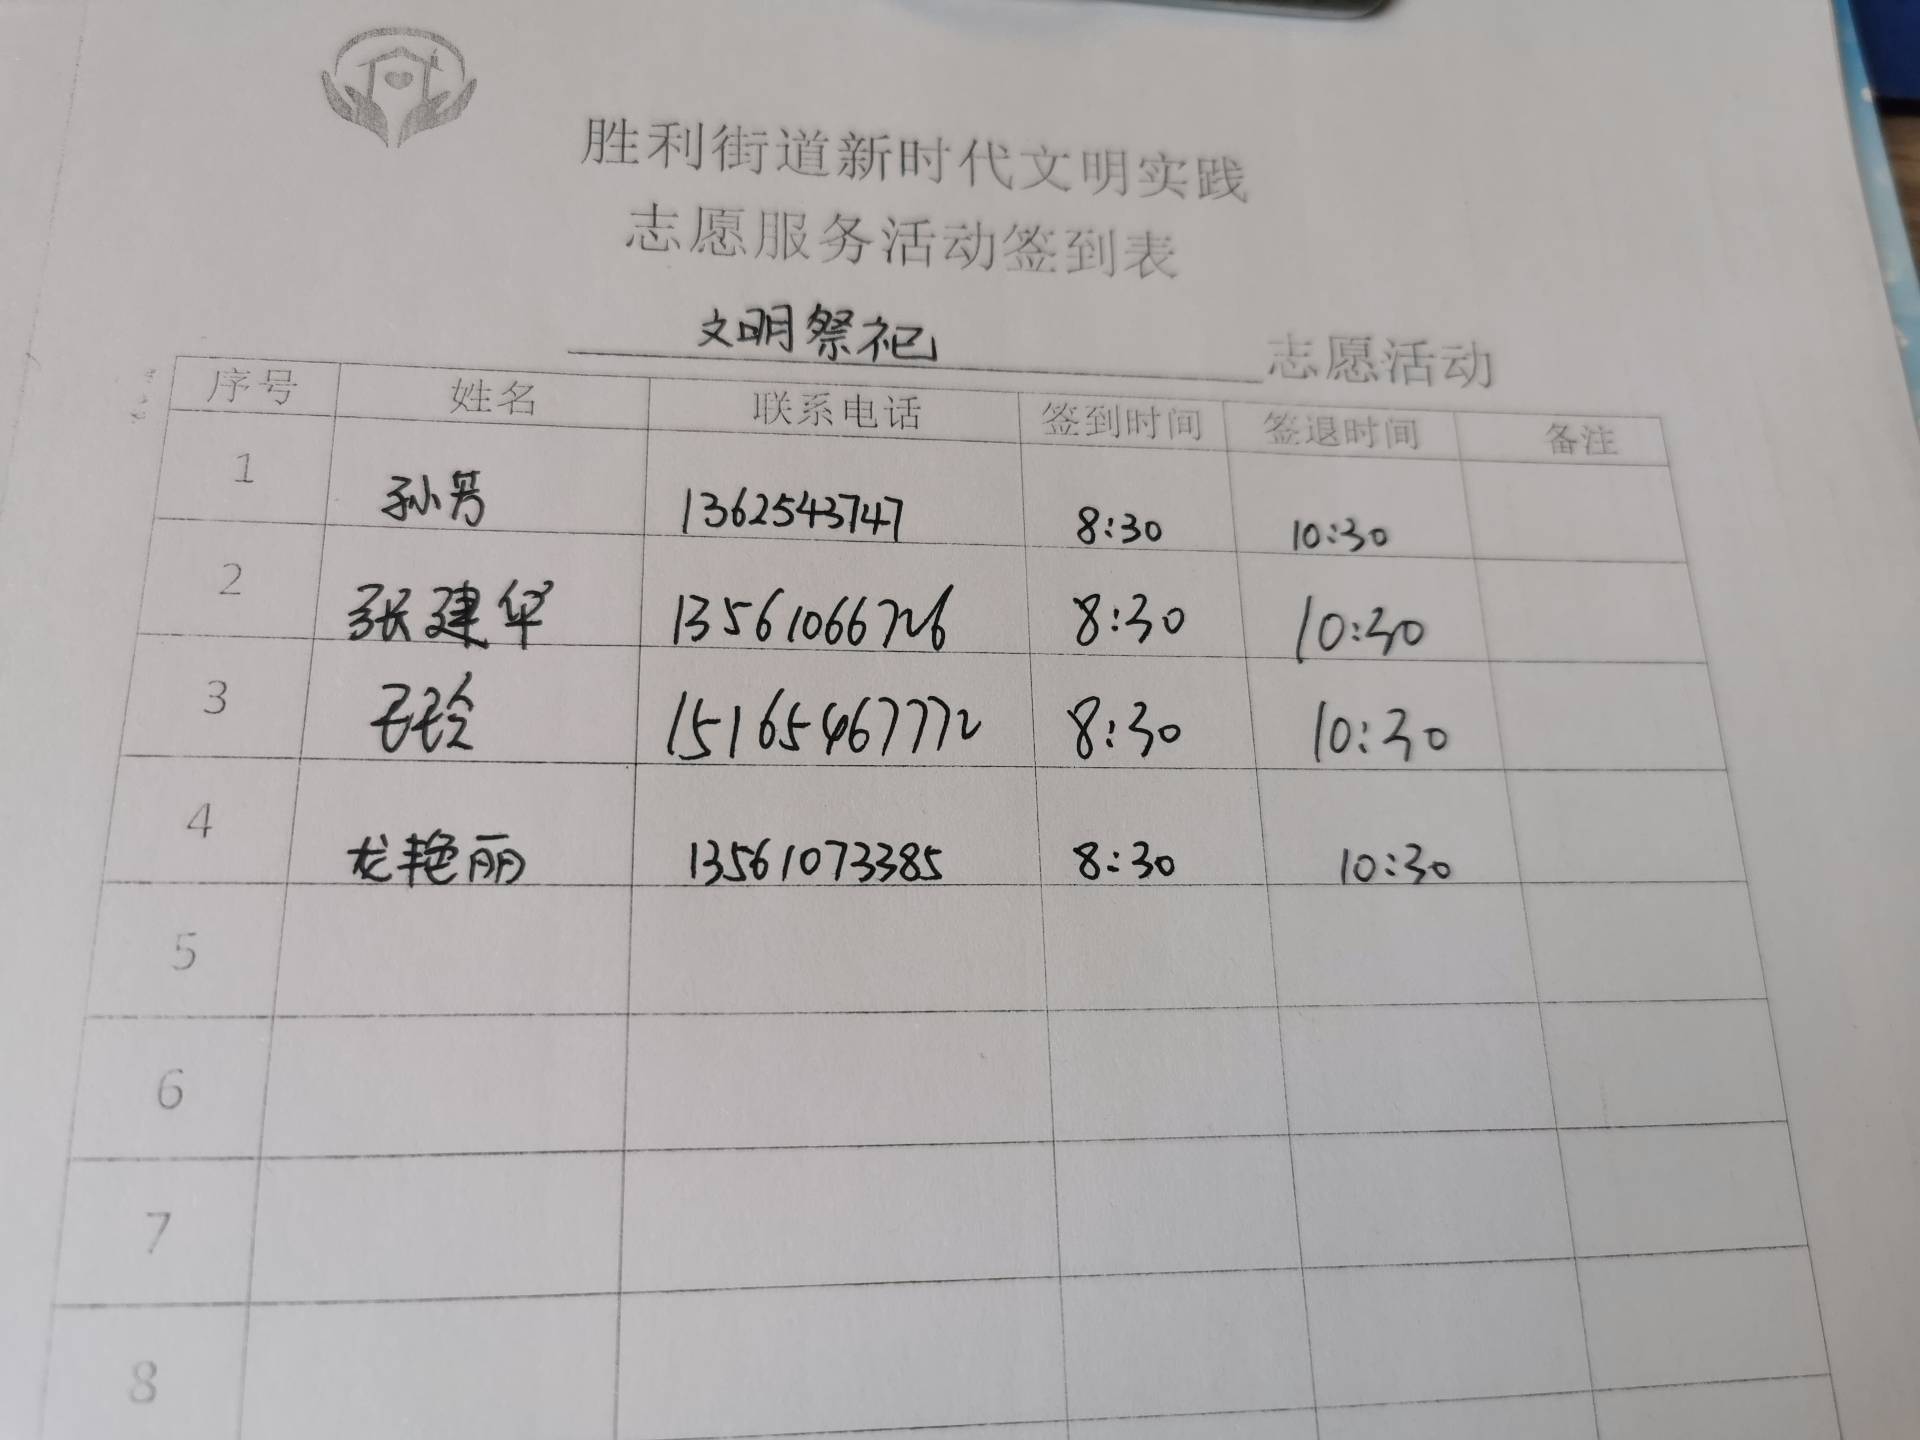 胜利街道新时代文明实践
志愿服务活动签到表
文明祭祀 志愿活动
序号 姓名 联系电话 签到时间 签退时间 备注
1 孙芳 1362543747 8:30 10:30
2 张建华 13561066726 8:30 10:30
3 15165467772 8:30 10:30
4 龙艳丽 13561073385 8:30 10:30
5
6
7
8